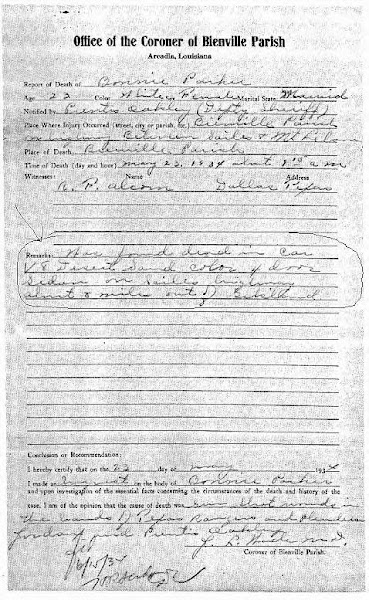 Office of the Coroner of Bienville Parish
Arcadia, Louisiana
Report of Death of Bonnie Parker
Age 23 Color White Sex Female Marital State Married
Notified by Prentis Oakley (Depty Sheriff)
Place Where Injury Occurred (street, city or parish, etc.) Bienville Parish
on highway Between Sailes &
Place of Death Bienville Parish
Time of Death (day and hour) May 23, 1934 about a m
Witnesses: Name Address
B. F. Alcorn Dallas Texas
Remarks: Was found dead in car
V8 Desert Sand color 4 door
Sedan on Sailes highway
about 8 mile out of Gibsland
Conclusion or Recommendation:
I hereby certify that on the 23 day of May 1934
I made an Inquest on the body of Bonnie Parker
and upon investigation of the essential facts concerning the circumstances of the death and history of the
case. I am of the opinion that the cause of death was Gun Shot wounds in
the hands of Texas Rangers and Henderson
Jordan and Prentis Oakley
J. L. Wade M.D.
Coroner of Bienville Parish.